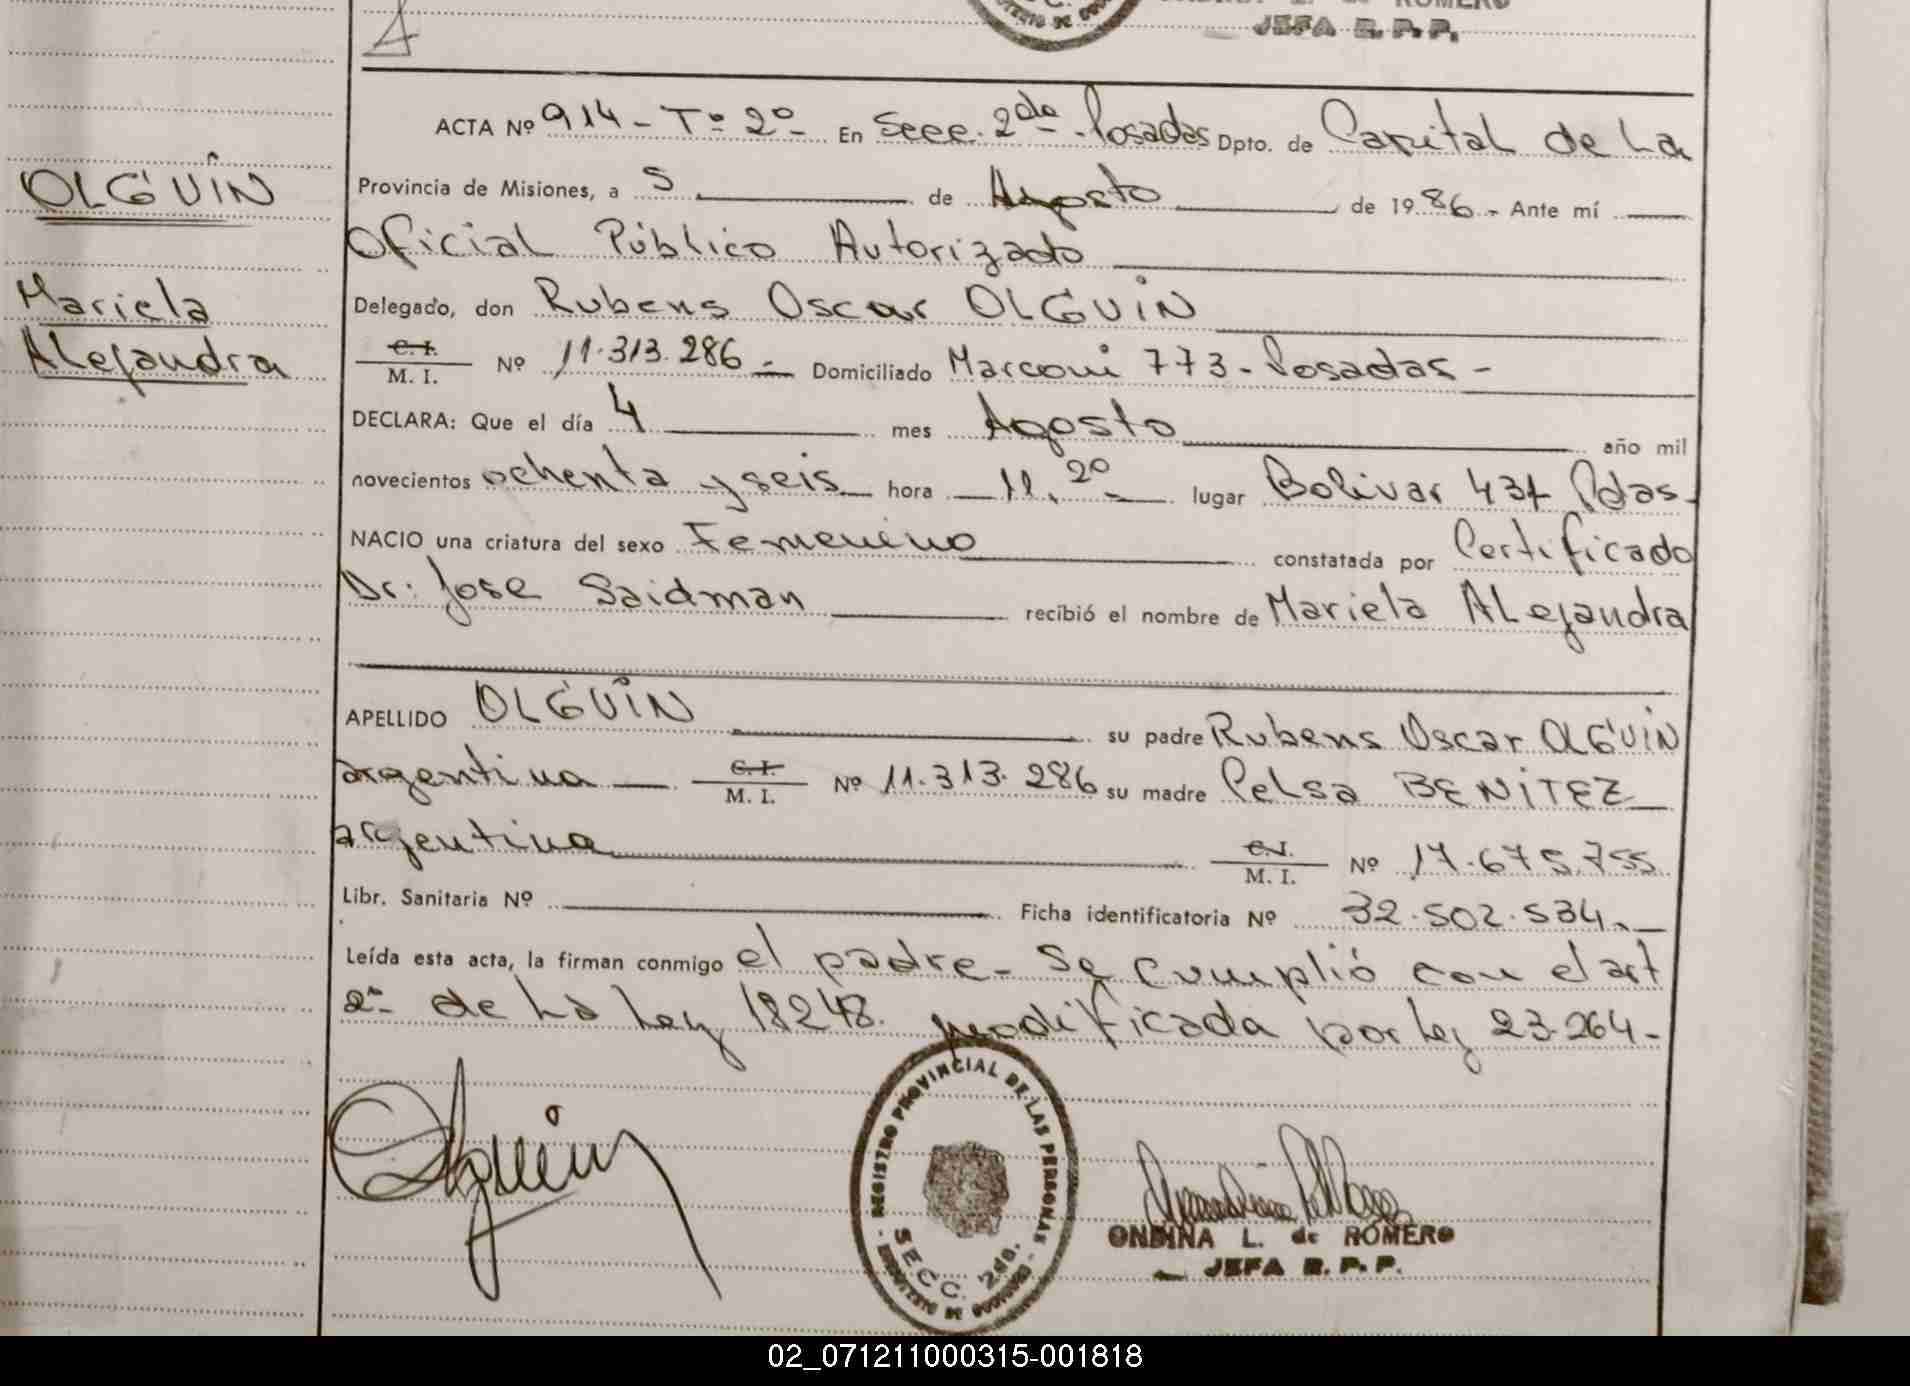 JEFA R. P. P.
ACTA Nº 914 - Tº 2º - En Secc. 2da - Posadas Dpto. de Capital de La
Provincia de Misiones, a 5 de Agosto de 1986. - Ante mí
Oficial Público Autorizado
Delegado, don Rubens Oscar OLGUIN
C. I. M. I. Nº 11.313.286 - Domiciliado Marconi 773 - Posadas -
DECLARA: Que el día 4 mes Agosto año mil
novecientos ochenta y seis hora 11.20 - lugar Bolivar 437 Pdas -
NACIO una criatura del sexo Femenino constatada por Certificado
Dr. Jose Saidman recibió el nombre de Mariela ALejandra
APELLIDO OLGUIN su padre Rubens Oscar OLGUIN
argentina C. I. M. I. Nº 11.313.286 su madre CeLsa BENITEZ
argentina C. I. M. I. Nº 17.675.755
Libr. Sanitaria Nº Ficha identificatoria Nº 32.502.534. -
Leída esta acta, la firman conmigo el padre - Se cumplió con el art
2º de La Ley 18248. modificada por Ley 23.264 -
OLGUIN
Mariela
ALejandra
Olguin
- REGISTRO PROVINCIAL DE LAS PERSONAS -
SECC. 2da.
ONDINA L. de ROMERO
JEFA R. P. P.
02_071211000315-001818